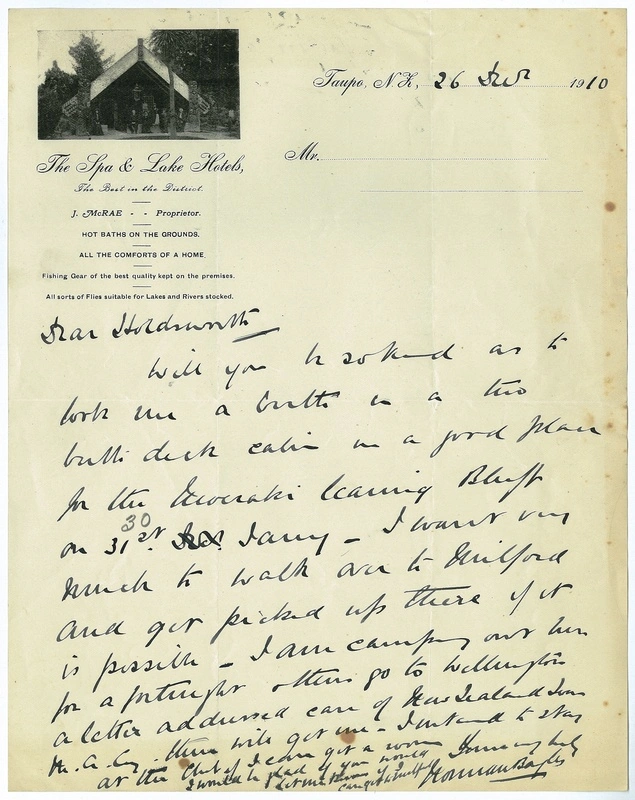 Taupo, N.Z., 26 Decr 1910
Mr.
The Spa & Lake Hotels,
The Best in the District.
J. McRAE - - Proprietor.
HOT BATHS ON THE GROUNDS.
ALL THE COMFORTS OF A HOME.
Fishing Gear of the best quality kept on the premises.
All sorts of Flies suitable for Lakes and Rivers stocked.
Dear Holdsworth
Will you be so kind as to
book me a berth in a two
berth deck cabin in a good place
for the Moeraki leaving Bluff
30
on 31st. Decr. Jany - I want very
much to walk over to Milford
and get picked up there if it
is possible - I am camping out here
for a fortnight then go to Wellington
a letter addressed care of New Zealand Loan
M. A. Coy. there will get me - I intend to stay
at the Club if I can get a room
I would be glad if you would
let me know if I
Norman